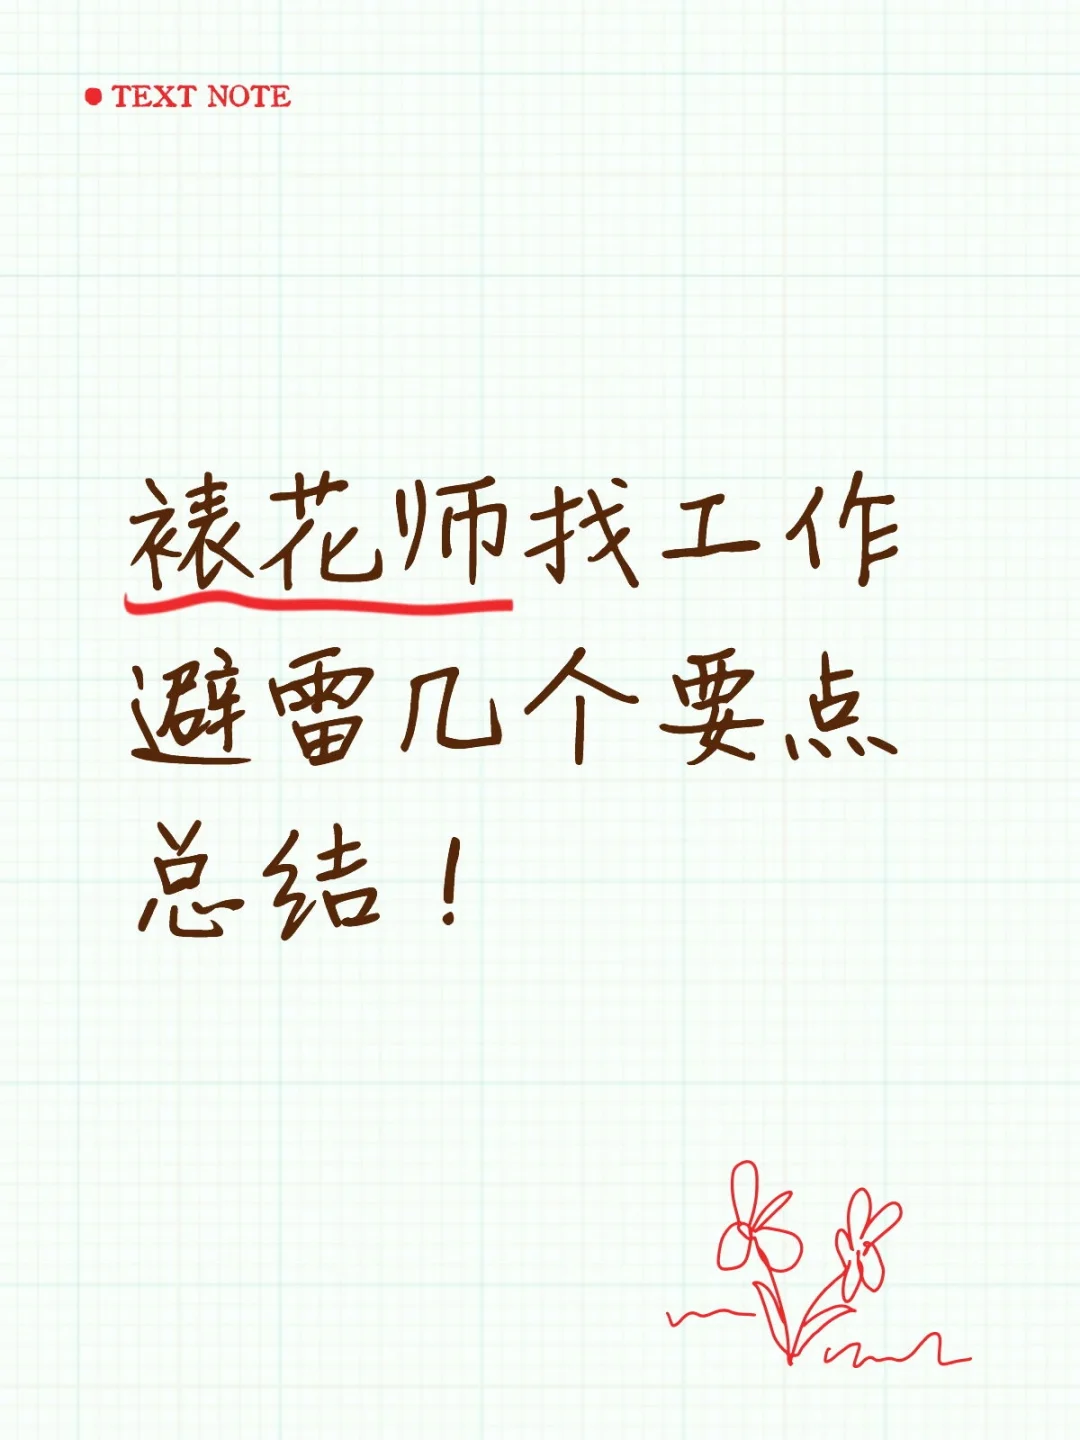 TEXT NOTE
裱花师找工作
避雷几个要点
总结！